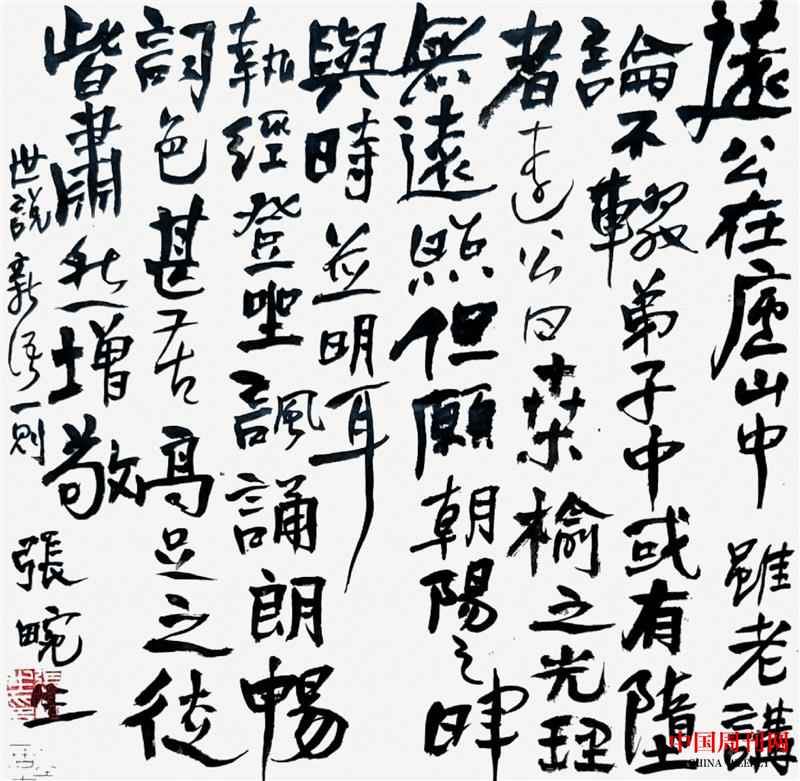 遠公在廬山中雖老講
論不輟弟子中或有墮
者遠公曰桑榆之光理
無遠照但願朝陽之暉
與時並明耳
執經登坐諷誦朗暢
詞色甚苦高足之徒
皆肅然增敬
世說新語一則
張畹生
中国周刊网
CHINA WEEKLY